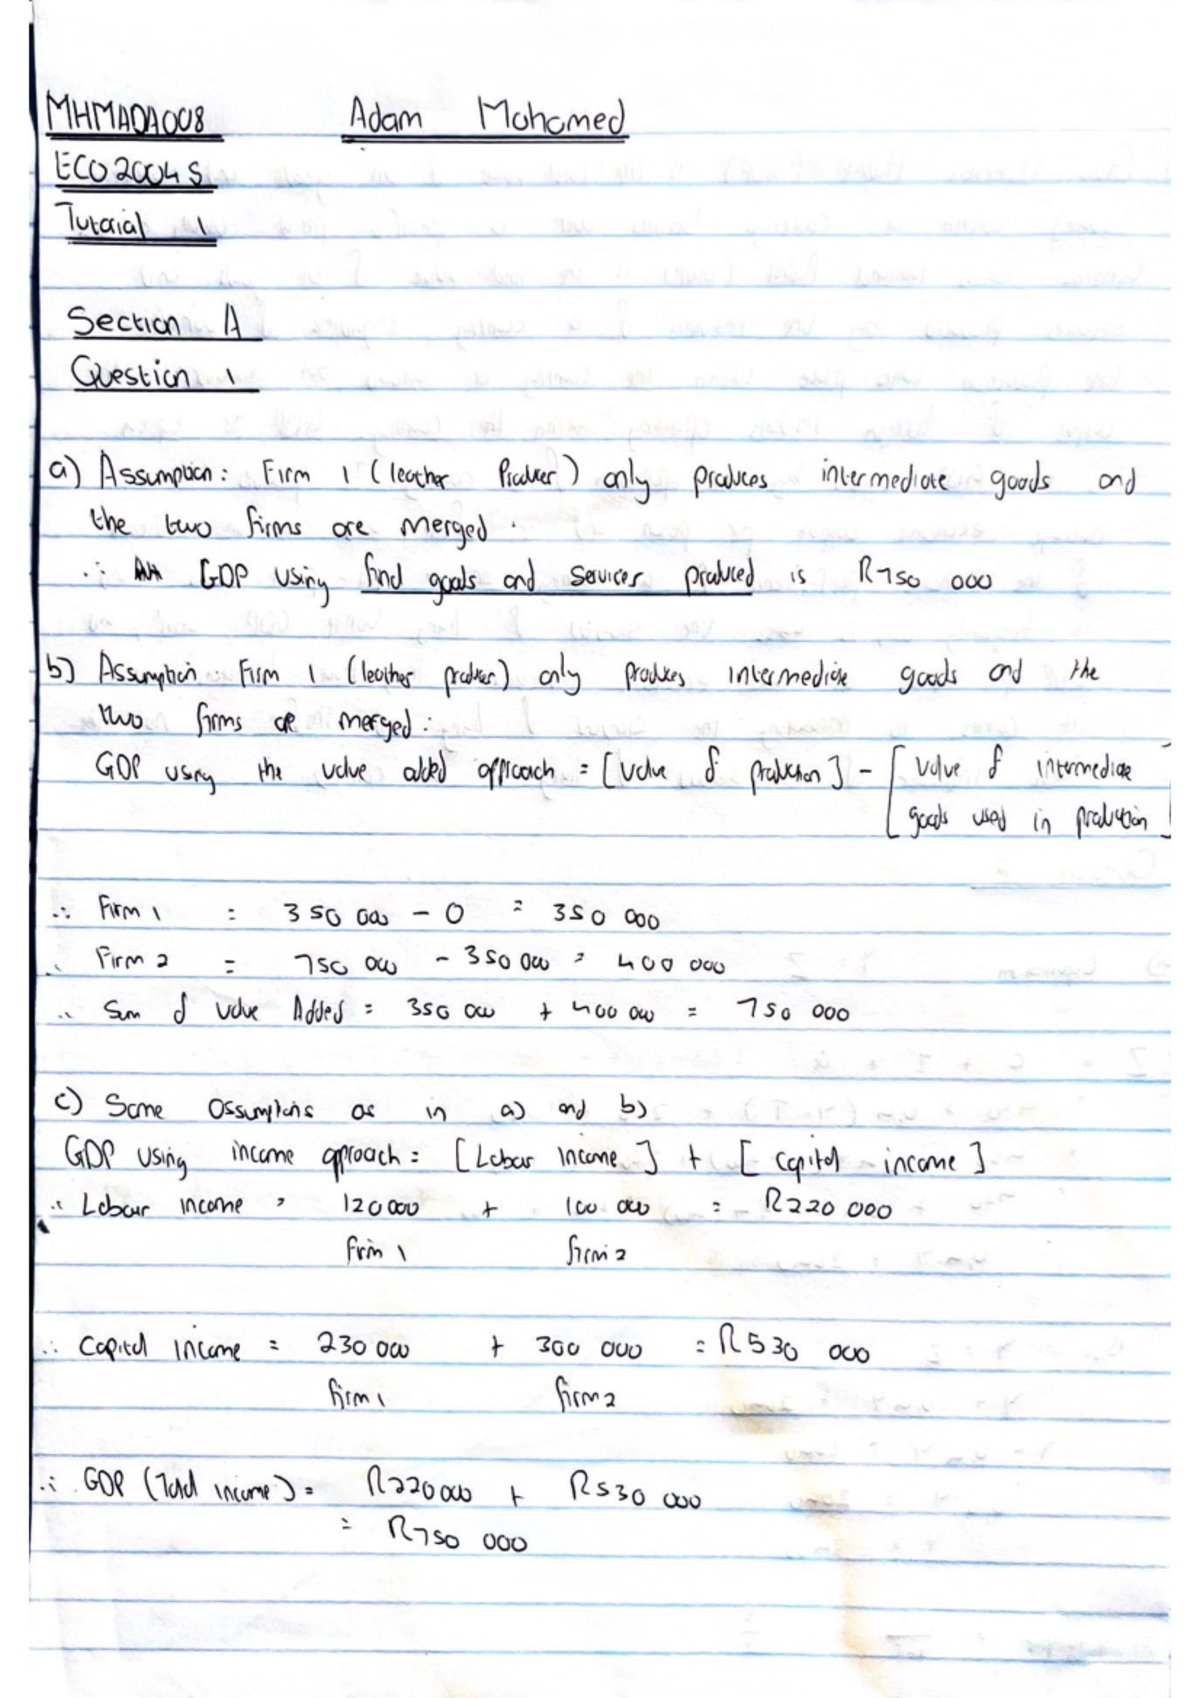 MHMADA008 Adam Mohamed
ECO2004S
Tutorial 1
Section A
Question 1
a) Assumption: Firm 1 (leather Producer) only produces intermediate goods and
the two firms are merged.
∴ GDP using final goods and services produced is R750 000
b) Assumption: Firm 1 (leather producer) only produces intermediate goods and the
two firms are merged:
GDP using the value added approach = [value of production] - [value of intermediate
goods used in production]
∴ Firm 1 = 350 000 - 0 = 350 000
∴ Firm 2 = 750 000 - 350 000 = 400 000
∴ Sum of value Added = 350 000 + 400 000 = 750 000
c) Same assumptions as in a) and b)
GDP using income approach = [Labour Income] + [capital income]
∴ Labour income = 120 000 + 100 000 = R220 000
Firm 1 firm 2
∴ Capital income = 230 000 + 300 000 = R530 000
firm 1 firm 2
∴ GDP (Total income) = R220 000 + R530 000
= R750 000